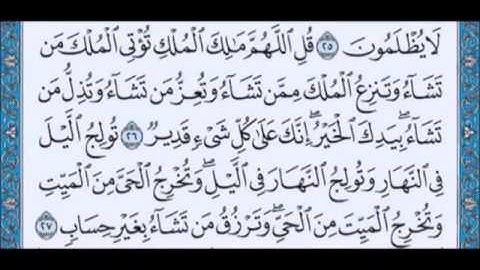 لَا يُظْلَمُونَ ٢٥ قُلِ اللَّهُمَّ مَالِكَ الْمُلْكِ تُؤْتِي الْمُلْكَ مَن
تَشَاءُ وَتَنزِعُ الْمُلْكَ مِمَّن تَشَاءُ وَتُعِزُّ مَن تَشَاءُ وَتُذِلُّ مَن
تَشَاءُ ۖ بِيَدِكَ الْخَيْرُ ۖ إِنَّكَ عَلَىٰ كُلِّ شَيْءٍ قَدِيرٌ ٢٦ تُولِجُ اللَّيْلَ
فِي النَّهَارِ وَتُولِجُ النَّهَارَ فِي اللَّيْلِ ۖ وَتُخْرِجُ الْحَيَّ مِنَ الْمَيِّتِ
وَتُخْرِجُ الْمَيِّتَ مِنَ الْحَيِّ ۖ وَتَرْزُقُ مَن تَشَاءُ بِغَيْرِ حِسَابٍ ٢٧